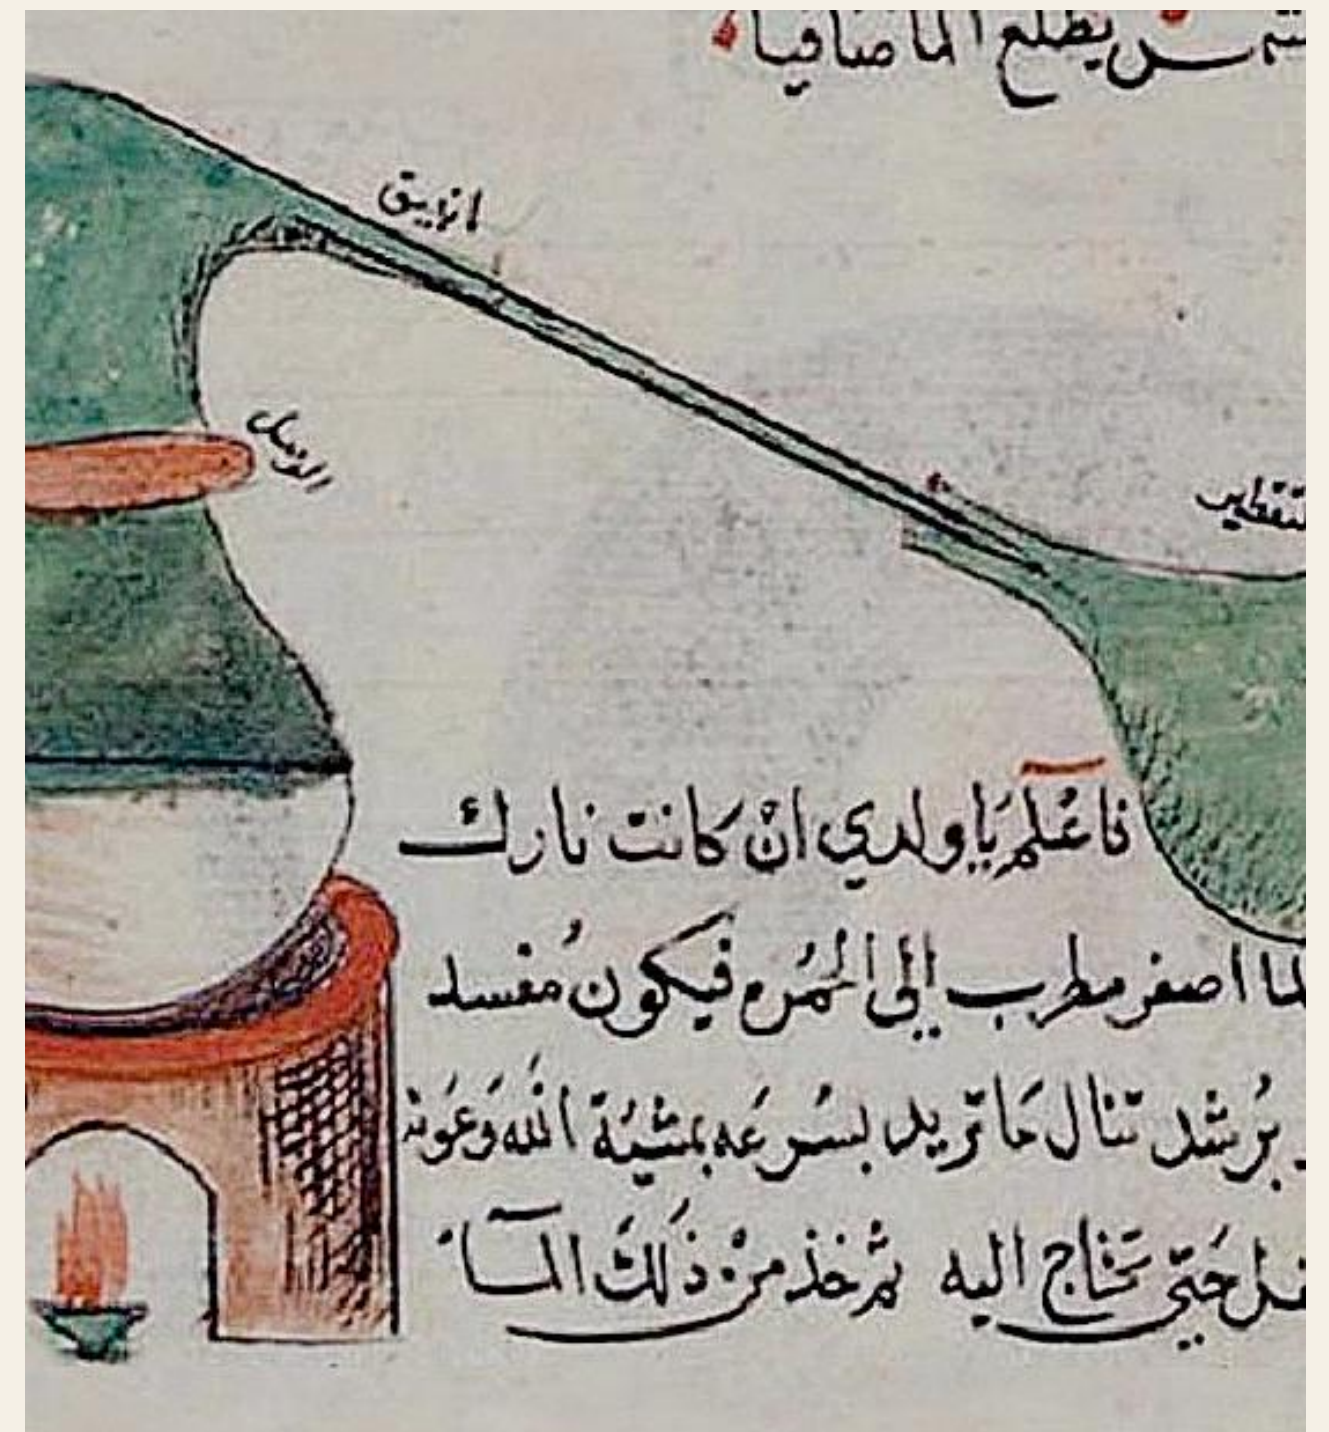 شمس يطلع الما صافيا
انبيق
الوصل
التقطير
فاعْلم يَا ولدي انْ كانت نارك
الما اصفر مطرب إلى الحُمُره فيكون مُفسد
بُرشد تنال مَا تريد بسُرعَه بمشيُة الله وَعَونه
حَتىّ تحتاج اليه ثم خذ منْ ذَلكَ المآء